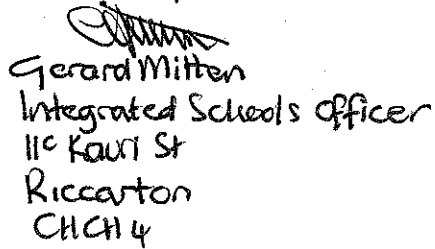 Gerard Mitten
Integrated Schools Officer
11c Kauri St
Riccarton
CHCH 4